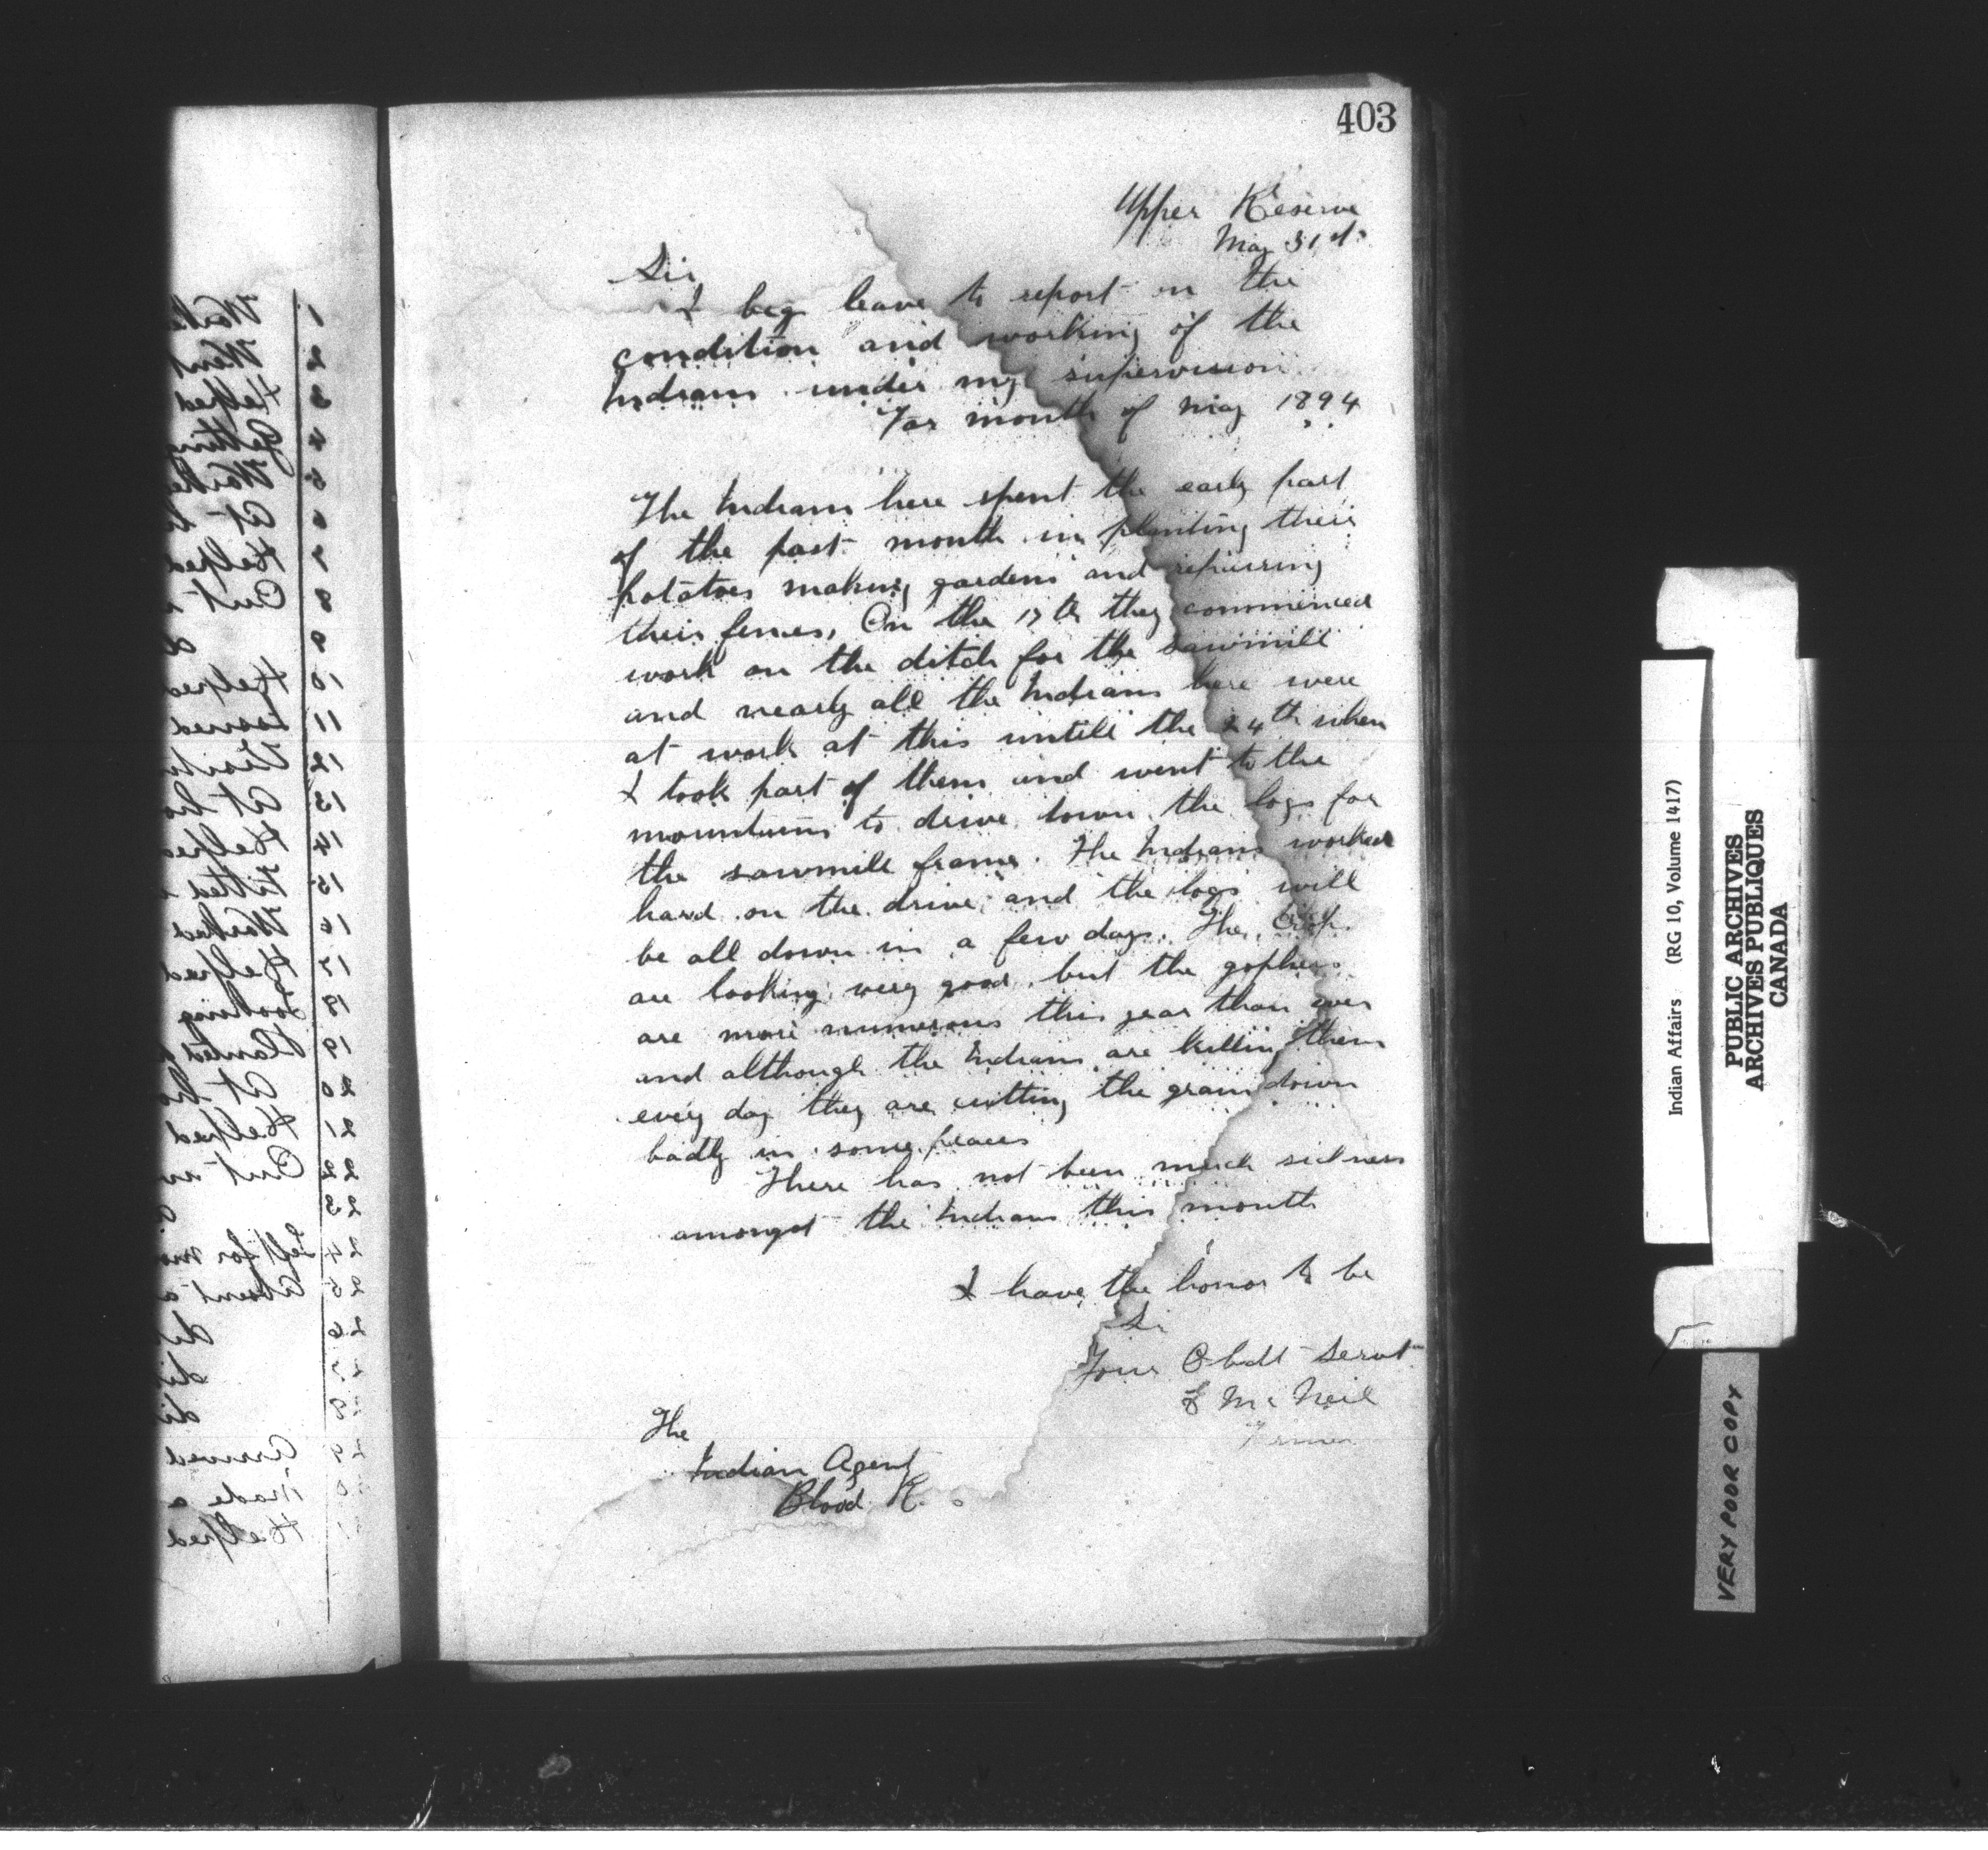 403
Upper Reserve
May 31st
Sir
I beg leave to report on the
condition and working of the
Indians under my supervision
For month of May 1894
The Indians here spent the early part
of the past month in planting their
potatoes making gardens and repairing
their fences, On the 17th they commenced
work on the ditch for the sawmill
and nearly all the Indians here were
at work at this untill the 24th when
I took part of them and went to the
mountains to drive down the logs for
the sawmill frame. The Indians worked
hard on the drive and the logs will
be all down in a few days. The Crops
are looking very good but the gophers
are more numerous this year than ever
and although the Indians are killing them
every day they are cutting the grain down
badly in some places
There has not been much sickness
amongst the Indians this month
I have the honor to be
Sir
Your Obdt Servt
McNeil
Farmer
The
Indian Agent
Blood R.
1
2 Went
3 Helped
4 Getting
5
6 At
7 Helped
8 Out
9
10 Helped
11 Issued
12
13 At
14 Helped
15
16 Worked
17 Helped
18 Looking
19 Planted
20 At
21 Helped
22 Out
23
24 Left for
25 Absent
26
29 Arrived
Made a
Helped
Indian Affairs (RG 10, Volume 1417)
PUBLIC ARCHIVES
ARCHIVES PUBLIQUES
CANADA
VERY POOR COPY